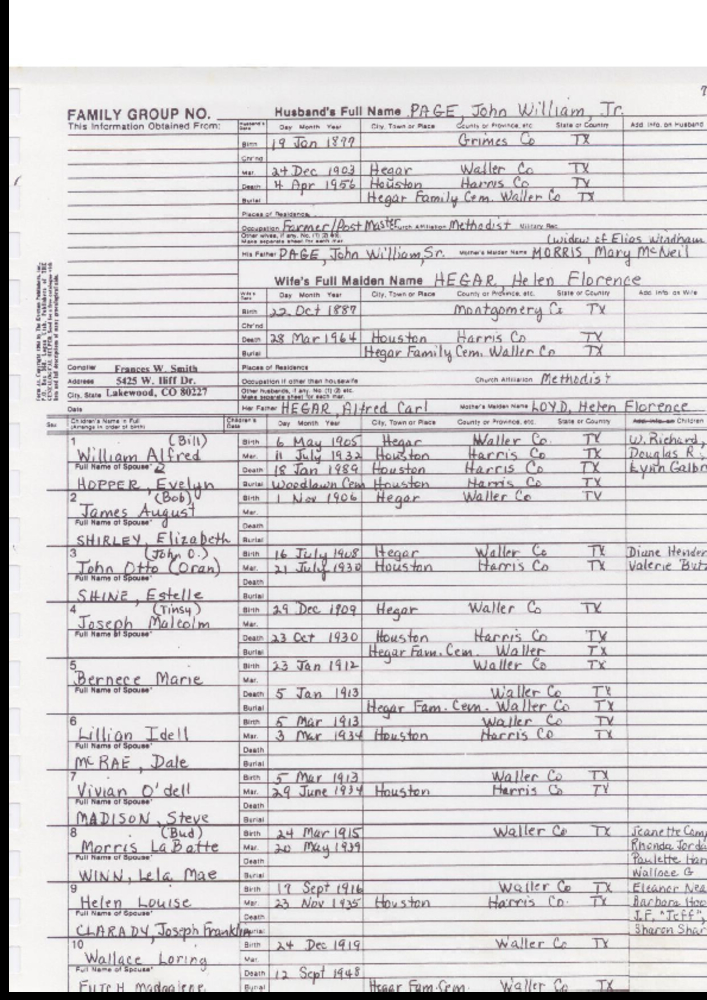 FAMILY GROUP NO. Husband's Full Name PAGE, John William, Jr.
This Information Obtained From: Husband's Data Day Month Year City, Town or Place County or Province, etc. State or Country Add. Info. on Husband
Birth 19 Jan 1877 Grimes Co TX
Chr'nd
Mar. 24 Dec 1903 Hegar Waller Co TX
Death 4 Apr 1956 Houston Harris Co TX
Burial Hegar Family Cem. Waller Co TX
Places of Residence
Occupation Farmer/Post Master Church Affiliation Methodist Military Rec.
Other wives, if any. No. (1) (2) etc.
Make separate sheet for each mar. (widow of Elias Windham
His Father PAGE, John William, Sr. Mother's Maiden Name MORRIS, Mary McNeil
Wife's Full Maiden Name HEGAR, Helen Florence
Wife's Data Day Month Year City, Town or Place County or Province, etc. State or Country Add. Info. on Wife
Birth 22 Oct 1887 Montgomery Co TX
Chr'nd
Death 28 Mar 1964 Houston Harris Co TX
Burial Hegar Family Cem. Waller Co TX
Compiler Frances W. Smith Places of Residence
Address 5425 W. Iliff Dr. Occupation if other than housewife Church Affiliation Methodist
City, State Lakewood, CO 80227 Other husbands, if any. No. (1) (2) etc.
Make separate sheet for each mar.
Date Her Father HEGAR, Alfred Carl Mother's Maiden Name LOYD, Helen Florence
Sex Children's Names in Full (Arrange in order of birth) Children's Data Day Month Year City, Town or Place County or Province, etc. State or Country Add. Info. on Children
1 (Bill) Birth 6 May 1905 Hegar Waller Co. TX W. Richard,
William Alfred Mar. 11 July 1932 Houston Harris Co TX Douglas R.,
Full Name of Spouse 2 Death 18 Jan 1989 Houston Harris Co TX Lynn Galbr
HOPPER, Evelyn Burial Woodlawn Cem Houston Harris Co TX
2 (Bob) Birth 1 Nov 1906 Hegar Waller Co TX
James August Mar.
Full Name of Spouse Death
SHIRLEY, Elizabeth Burial
3 (John O.) Birth 16 July 1908 Hegar Waller Co TX Diane Hender
John Otto (Oran) Mar. 21 July 1930 Houston Harris Co TX Valerie Butz
Full Name of Spouse Death
SHINE, Estelle Burial
4 (Tinsy) Birth 29 Dec 1909 Hegar Waller Co TX
Joseph Malcolm Mar.
Full Name of Spouse Death 23 Oct 1930 Houston Harris Co TX
Burial Hegar Fam. Cem. Waller TX
5 Birth 23 Jan 1912 Waller Co TX
Bernece Marie Mar.
Full Name of Spouse Death 5 Jan 1913 Waller Co TX
Burial Hegar Fam. Cem. Waller Co TX
6 Birth 5 Mar 1913 Waller Co TX
Lillian Idell Mar. 3 Mar 1934 Houston Harris Co TX
Full Name of Spouse Death
McRAE, Dale Burial
7 Birth 5 Mar 1913 Waller Co TX
Vivian O'dell Mar. 29 June 1934 Houston Harris Co TX
Full Name of Spouse Death
MADISON, Steve Burial
8 (Bud) Birth 24 Mar 1915 Waller Co TX Jeanette Cam
Morris LaBatte Mar. 20 May 1939 Rhonda Jorda
Full Name of Spouse Death Paulette Han
WINN, Lela Mae Burial Wallace G
9 Birth 17 Sept 1916 Waller Co TX Eleanor Nea
Helen Louise Mar. 23 Nov 1935 Houston Harris Co. TX Barbara Hoo
Full Name of Spouse Death J.F. "Jeff",
CLARADY, Joseph Franklin Burial Sharon Shar
10 Birth 24 Dec 1919 Waller Co TX
Wallace Loring Mar.
Full Name of Spouse Death 12 Sept 1948
Burial Hegar Fam. Cem. Waller Co TX